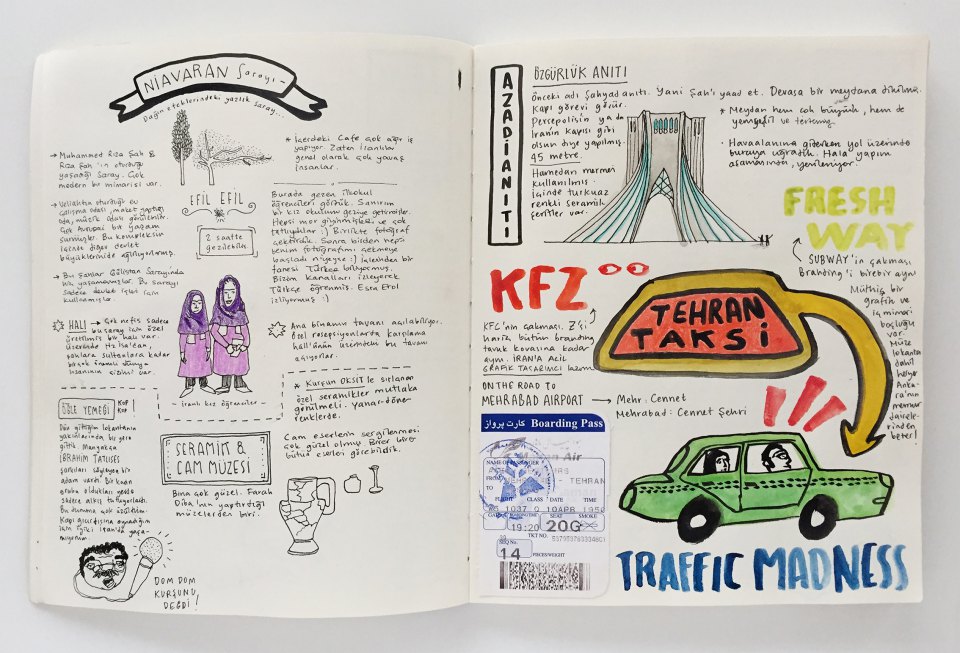 NIAVARAN Sarayı
Dağın eteklerindeki yazlık saray...
→ Muhammed Rıza Şah &
Rıza Şah'ın oturduğu
yaşadığı Saray. Çok
modern bir mimarisi var.
→ Veliahtın oturduğu ev
çalışma odası, maket yaptığı
oda, müzik odası görülebilir.
Çok Avrupai bir yaşam
sürmüşler. Bu kompleksin
içinde diğer devlet
büyüklerinde ağırlıyorlarmış.
→ Bu Şahlar Gülistan Sarayında
hiç yaşamamışlar. Bu sarayı
sadece devlet işleri için
kullanmışlar.
HALI → Çok nefis sadece
bu saray için özel
üretilmiş bir halı var.
Üzerinde Hz İsa'dan,
şahlara sultanlara kadar
birçok önemli dünya
insanının çizimi var.
ÖĞLE YEMEĞİ
KOP KOP!
Dün gittiğim lokantanın
yakınlarında bir yere
gittik. Mangalcı
İBRAHİM TATLISES
şarkıları söyleyen bir
adam vardı. Bir kadın
grubu oldukları yerde
sadece alkış tutuyorlardı.
Bu duruma çok üzüldüm.
DOM DOM
KURŞUNU
DEĞDİ!
* İçerdeki Cafe çok ağır iş
yapıyor. Zaten İranlılar
genel olarak çok yavaş
insanlar.
EFİL EFİL
2 saatte
gezilebilir.
Burada gezen ilkokul
öğrencileri gördük. Sanırım
bir kız okulunu geziye getirmişler.
Hepsi mor giyinmişlerdi ve çok
tatlıydılar :) Birlikte fotoğraf
çektirdik. Sonra birden hepsi
benim fotoğrafımı çekmeye
başladı niyeyse :) İçlerinden bir
tanesi Türkçe biliyormuş.
Bizim kanalları izleyerek
Türkçe öğrenmiş. Esra Erol
izliyormuş :)
Ana binanın tavanı açılabiliyor.
Özel resepsiyonlarda karşılama
hall'ünün üzerinden bu tavanı
açıyorlar.
İranlı kız öğrenciler
* Kurşun OKSİT le sırlanan
özel seramikler mutlaka
görülmeli. yanar-döner
renklerde.
SERAMİK &
CAM MÜZESİ
Bina çok güzel. Farah
Diba'nın yaptırdığı
müzelerden biri.
Cam eserlerin sergilenmesi
çok güzel olmuş. Birer birer
bütün eserleri görebildik.
AZADI ANITI
ÖZGÜRLÜK ANITI
Önceki adı Şahyad anıtı. Yani Şah'ı yaad et. Devasa bir meydana dikilmiş.
Kapı görevi görür.
Persepolisin ya da
İranın kapısı gibi
olsun diye yapılmış.
45 metre.
Hamedan mermeri
kullanılmış.
İçinde turkuaz
renkli seramik
şeritler var.
* Meydan hem çok büyük, hem de
yemyeşil ve tertemiz
• Havaalanına giderken yol üzerinde
buraya uğradık. Hala yapım
aşamasında, yenileniyor.
FRESH
WAY
SUBWAY'in çakması
Branding'i birebir aynı
Müthiş bir
grafik ve
iç mimari
boşluğu
var.
Müze
lokanta
dahil
herşey
Anka-
ra'nın
memur
daire-
lerinden
beter!
KFZ
KFC'nin çakması. Z'si
hariç bütün branding
tavuk kovasına kadar
aynı. İRAN'A ACİL
GRAFİK TASARIMCI lazım
TEHRAN
TAKSİ
ON THE ROAD TO
MEHRABAD AIRPORT → Mehr: Cennet
Mehrabad: Cennet Şehri
کارت پرواز Boarding Pass
Air
NAME OF PASSENGER
FROM
TEHRAN
TO
FLIGHT CLASS DATE TIME
1037 Q 10APR 1950
GATE BOARDING TIME SEAT SMOKE
19:20 20G
TKT NO.
SEQ NO.
14
PIECES/WEIGHT
TRAFFIC MADNESS